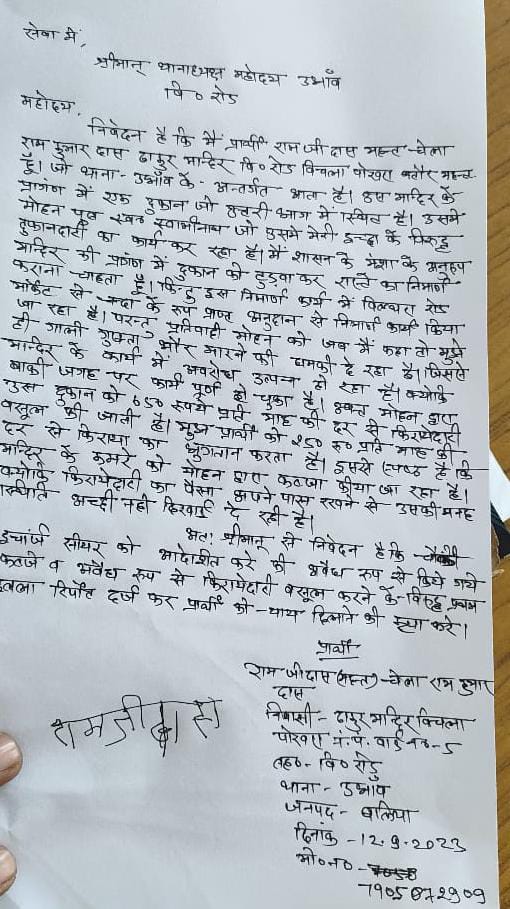 सेवा में,
श्रीमान् थानाध्यक्ष महोदय उभाँव
वि० रोड
महोदय,
निवेदन है कि मैं प्रार्थी राम जी दास महन्त चेला
राम कुमार दास ठाकुर मन्दिर वि० रोड बिचला पोखरा बतौर महन्त
हूँ। जो थाना- उभाँव के अन्तर्गत आता है। उस मन्दिर के
प्रांगण में एक दुकान जो उत्तरी भाग में स्थित है। उसमे
मोहन पुत्र स्व० स्वामीनाथ जो उसमे मेरी इच्छा के विरुद्ध
दुकानदारी का कार्य कर रहा है। मैं शासन के मंशा के अनुरूप
मन्दिर की प्रांगण में दुकान को तुड़वा कर रास्ते का निर्माण
कराना चाहता हूँ। किन्तु इस निर्माण कार्य में बिल्थरा रोड
मार्केट से चन्दा के रूप प्राप्त अनुदान से निर्माण कार्य किया
जा रहा है। परन्तु प्रतिवादी मोहन को जब मैं कहा तो मुझे
ही गाली गुप्ता और मारने की धमकी दे रहा है। जिससे
मन्दिर के कार्य में अवरोध उत्पन्न हो रहा है। क्योकि
बाकी जगह पर कार्य पूर्ण हो चुका है। उक्त मोहन द्वारा
उस दुकान को 650 रुपये प्रति माह की दर से किरायेदारी
वसूल की जाती है। मुझ प्रार्थी को 250 रु० प्रति माह की
दर से किराया का भुगतान करता है। इससे स्पष्ट है कि
मन्दिर के कमरे को मोहन द्वारा कब्जा कीया जा रहा है।
क्योकि किरायेदारी का पैसा अपने पास रखने से उसकी मनह
स्थिति अच्छी नही दिखाई दे रही है।
अतः श्रीमान् से निवेदन है कि चौकी
इंचार्ज सीयर को आदेशित करे की अवैध रूप से किये गये
कब्जे व अवैध रूप से किरायेदारी वसूल करने के विरुद्ध प्रथम
इत्तला रिर्पोट दर्ज कर प्रार्थी को न्याय दिलाने की कृपा करे।
प्रार्थी
राम जी दास (महन्त) चेला राम कुमार
दास
निवासी- ठाकुर मन्दिर बिचला
पोखरा नं. पं. वार्ड न०-5
तह०- वि० रोड
थाना- उभाँव
जनपद- बलिया
दिनांक -12.9.2023
मो०न०-
7905872909
रामजीदास